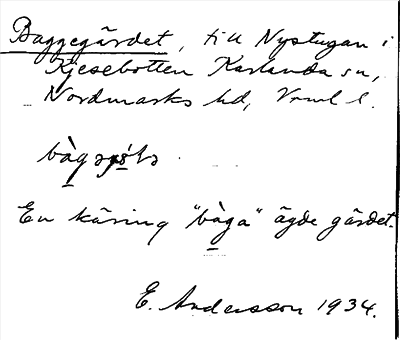 Baggegärdet, till Nystugan i
Kjesebotten Karlanda sn,
Nordmarks hd, Vrml l.
En käring "bàga" ägde gärdet.
E. Andersson 1934.